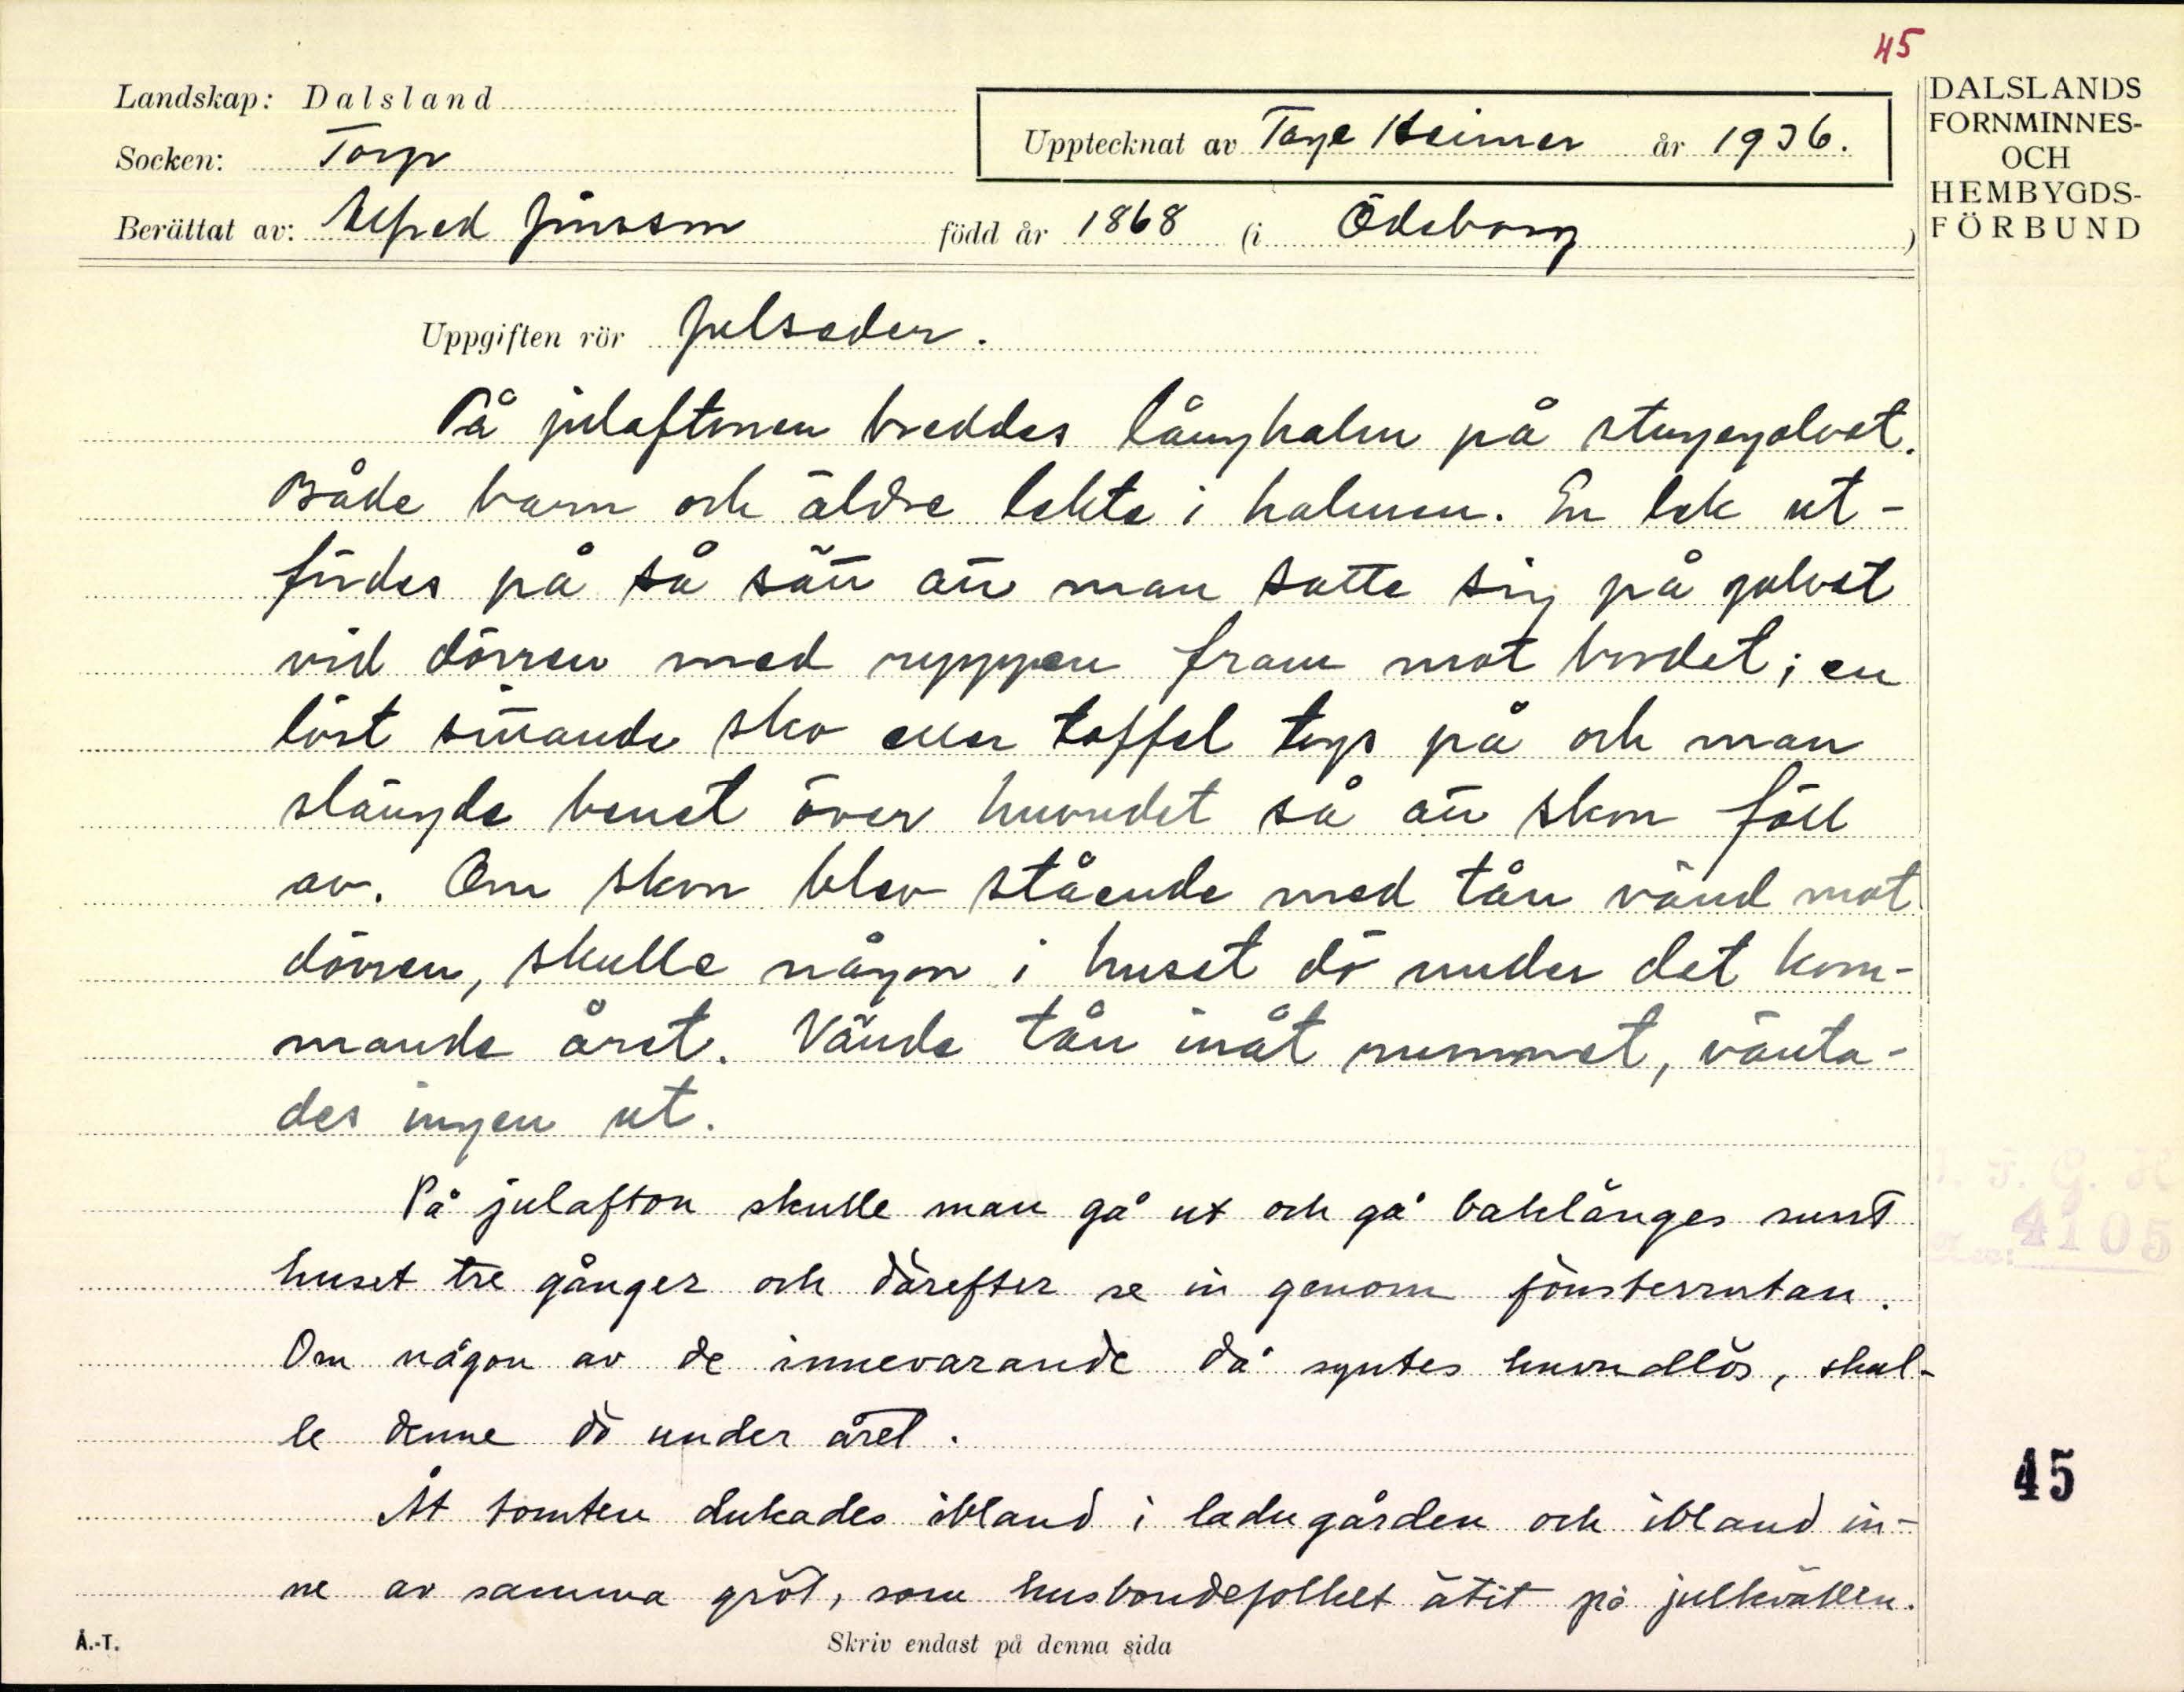 45
Landskap: Dalsland
Socken: Torp
Upptecknat av Tage Heimer år 1936.
Berättat av: Alfred Jönsson född år 1868 (i Ödeborg)
DALSLANDS
FORNMINNES-
OCH
HEMBYGDS-
FÖRBUND
Uppgiften rör Julseder.
På julaftonen breddes långhalm på stugugolvet.
Både barn och äldre lekte i halmen. En lek ut-
fördes på så sätt att man satte sig på golvet
vid dörren med ryggen fram mot bordet; en
löst sittande sko eller toffel togs på och man
slängde benet över huvudet så att skon föll
av. Om skon blev stående med tån vänd mot
dörren, skulle någon i huset dö under det kom-
mande året. Vände tån inåt rummet, vänta-
des ingen ut.
På julafton skulle man gå ut och gå baklänges runt
huset tre gånger och därefter se in genom fönsterrutan.
Om någon av de innevarande då syntes huvudlös, skul-
le denne dö under året.
Åt tomten dukades ibland i ladugården och ibland in-
ne av samma gröt, som husbondefolket ätit på julkvällen.
4105
45
Å.-T.
Skriv endast på denna sida